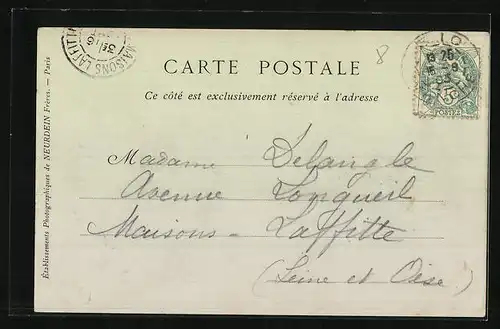 MAISONS LAFFITTE
8
CARTE POSTALE
Ce côté est exclusivement réservé à l'adresse
5
POSTES
Madame Delangle
Avenue Longueil
Maisons-Laffitte
(Seine et Oise)
Établissements Photographiques de NEURDEIN Frères. — Paris